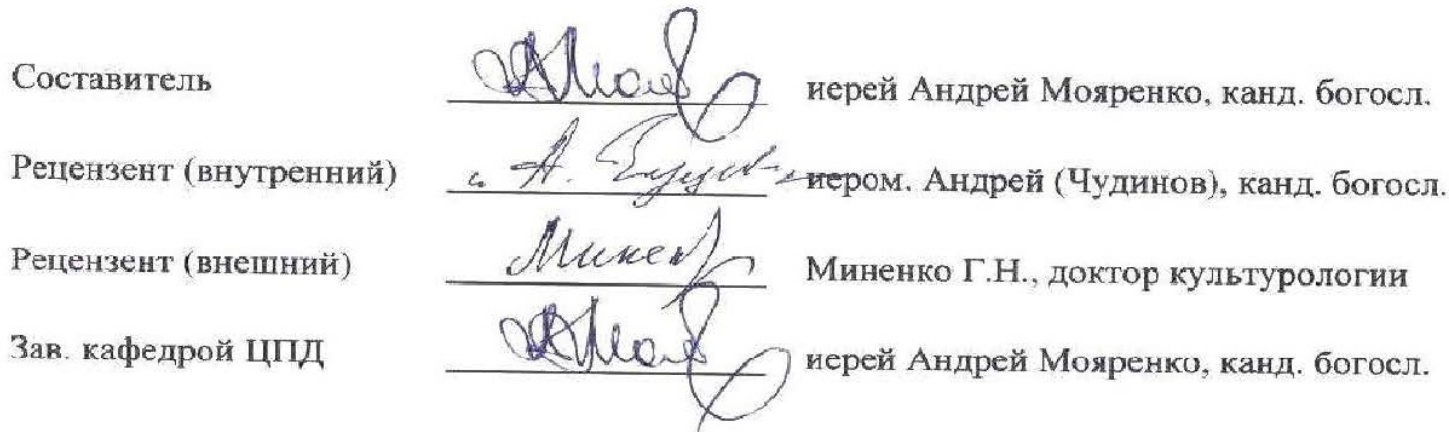 Составитель иерей Андрей Мояренко, канд. богосл.
Рецензент (внутренний) иером. Андрей (Чудинов), канд. богосл.
Рецензент (внешний) Миненко Г.Н., доктор культурологии
Зав. кафедрой ЦПД иерей Андрей Мояренко, канд. богосл.